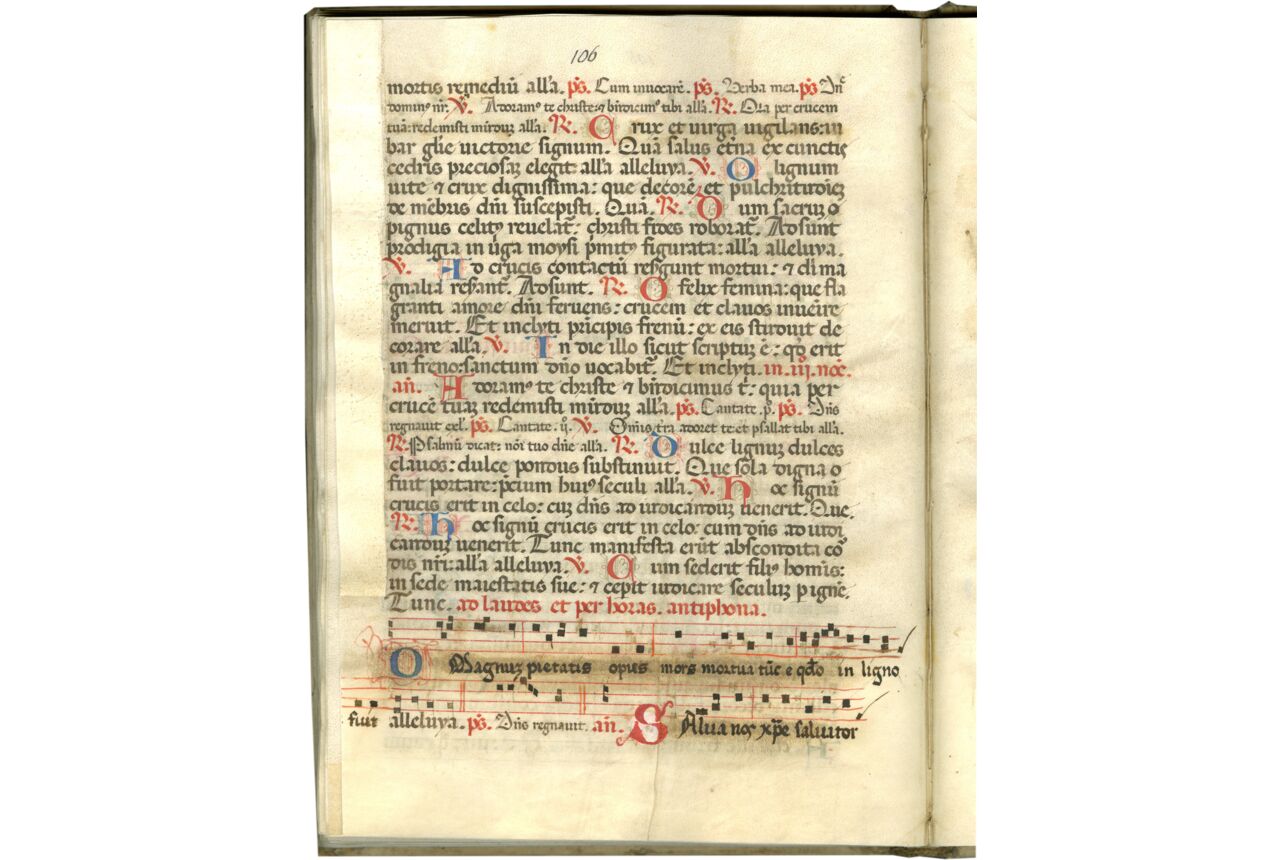 106
mortis remediū all'a. p̄s. Cum inuocarē. p̄s. Verba mea. p̄s Dn̄e
dominꝰ nr̄. ℣. Adoramꝰ te christe: ⁊ bn̄dicimꝰ tibi all'a. ℟. Qia per crucem
tuā: redemisti mūduꝫ all'a. ℟. Crux et uirga uigilans: iu
bar gl'ie uictorie signum. Quā salus et'na ex cunctis
cedris preciosaꝫ elegit all'a alleluya. ℣. O lignum
uite ⁊ crux dignissima: que decorē et pulchritudīeꝫ
de mēbris dn̄i suscepisti. Quā. ℟. Dum sacruꝫ
pignus celitꝰ reuelat᷑: christi fides roborat᷑. Adsunt
prodigia in u'ga moysi p'mitꝰ figurata: all'a alleluya.
℣. Ad crucis contactū res'gunt mortui: ⁊ di ma
gnalia res'ant᷑. Adsunt. ℟. O felix femina: que fla
granti amore dn̄i feruens: crucem et clauos inuenire
meruit. Et inclyti prīcipis frenū: ex eis studuit de
corare all'a. ℣. In die illo sicut scriptuꝫ ē: qd' erit
in freno: sanctum dn̄o uocabit᷑. Et inclyti. in. iij. noc̄.
an̄. Adoramꝰ te christe ⁊ bn̄dicimus t': quia per
crucē tuaꝫ redemisti mūduꝫ all'a. p̄s. Cantate. p'. p̄s. Dn̄s
regnauit exl'. p̄s. Cantate. ij'. ℣. Omīs t'ra adoret te: et psallat tibi all'a.
℟. Psalmū dicat: noī tuo dn̄e all'a. ℟. Dulce lignuꝫ dulces
clauos: dulce pondus substinuit. Que sola digna
fuit portare: p̄cium huiꝰ seculi all'a. ℣. Hoc signū
crucis erit in celo: cuꝫ dn̄s ad iudicanduꝫ uenerit. Que.
℟. Hoc signū crucis erit in celo: cum dn̄s ad iudi
canduꝫ uenerit. Tunc manifesta erūt abscondita cor
dis nr̄i: all'a alleluya. ℣. Cum sederit filiꝰ homīs:
in sede maiestatis sue: ⁊ ceperit iudicare seculuꝫ p ignē.
Tunc. ad laudes et per horas. antiphona.
O Magnuꝫ pietatis opus mors mortua tūc e qn̄do in ligno
fuit alleluya. p̄s. Dn̄s regnauit. an̄. SAlua nos xp̄e saluator